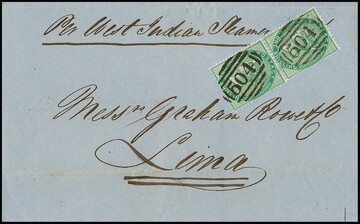 Per West Indian Steamer
504
504
Messrs Graham Rowe & Co
Lima